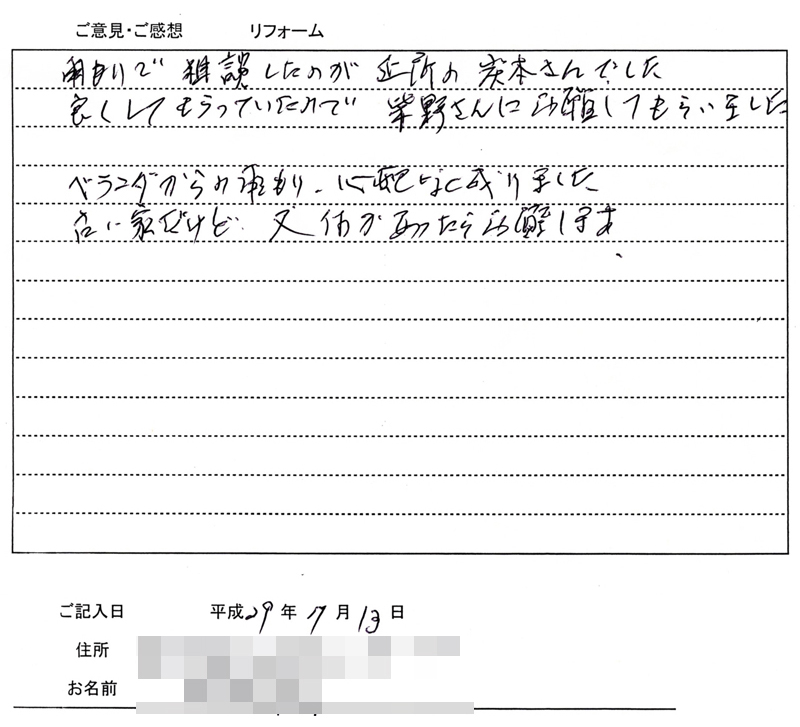 ご意見・ご感想 リフォーム
雨もりで 雑談したのが 近所の 炭本さんでした
良くしてもらっていたので 柴野さんに してもらいました
ベランダからの雨もり、心配なく成りました
古い家だけど、又何かあったらお願します
ご記入日 平成29年7月13日
住所
お名前